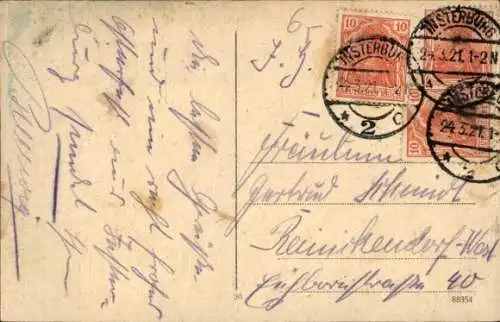 Die besten Grüße
und ein recht frohes
Osterfest aus
Insterburg sendet Ihr
6
F. F.
10
INSTERBURG
24.3.21. 1-2N
* 2 c
10
INSTERBURG
24.3.21. 1-2N
10
24.3.21. 1
* 2 c
Fräulein
Gertrud Schmidt
Reinickendorf-West
Eichbornstraße 40
88354